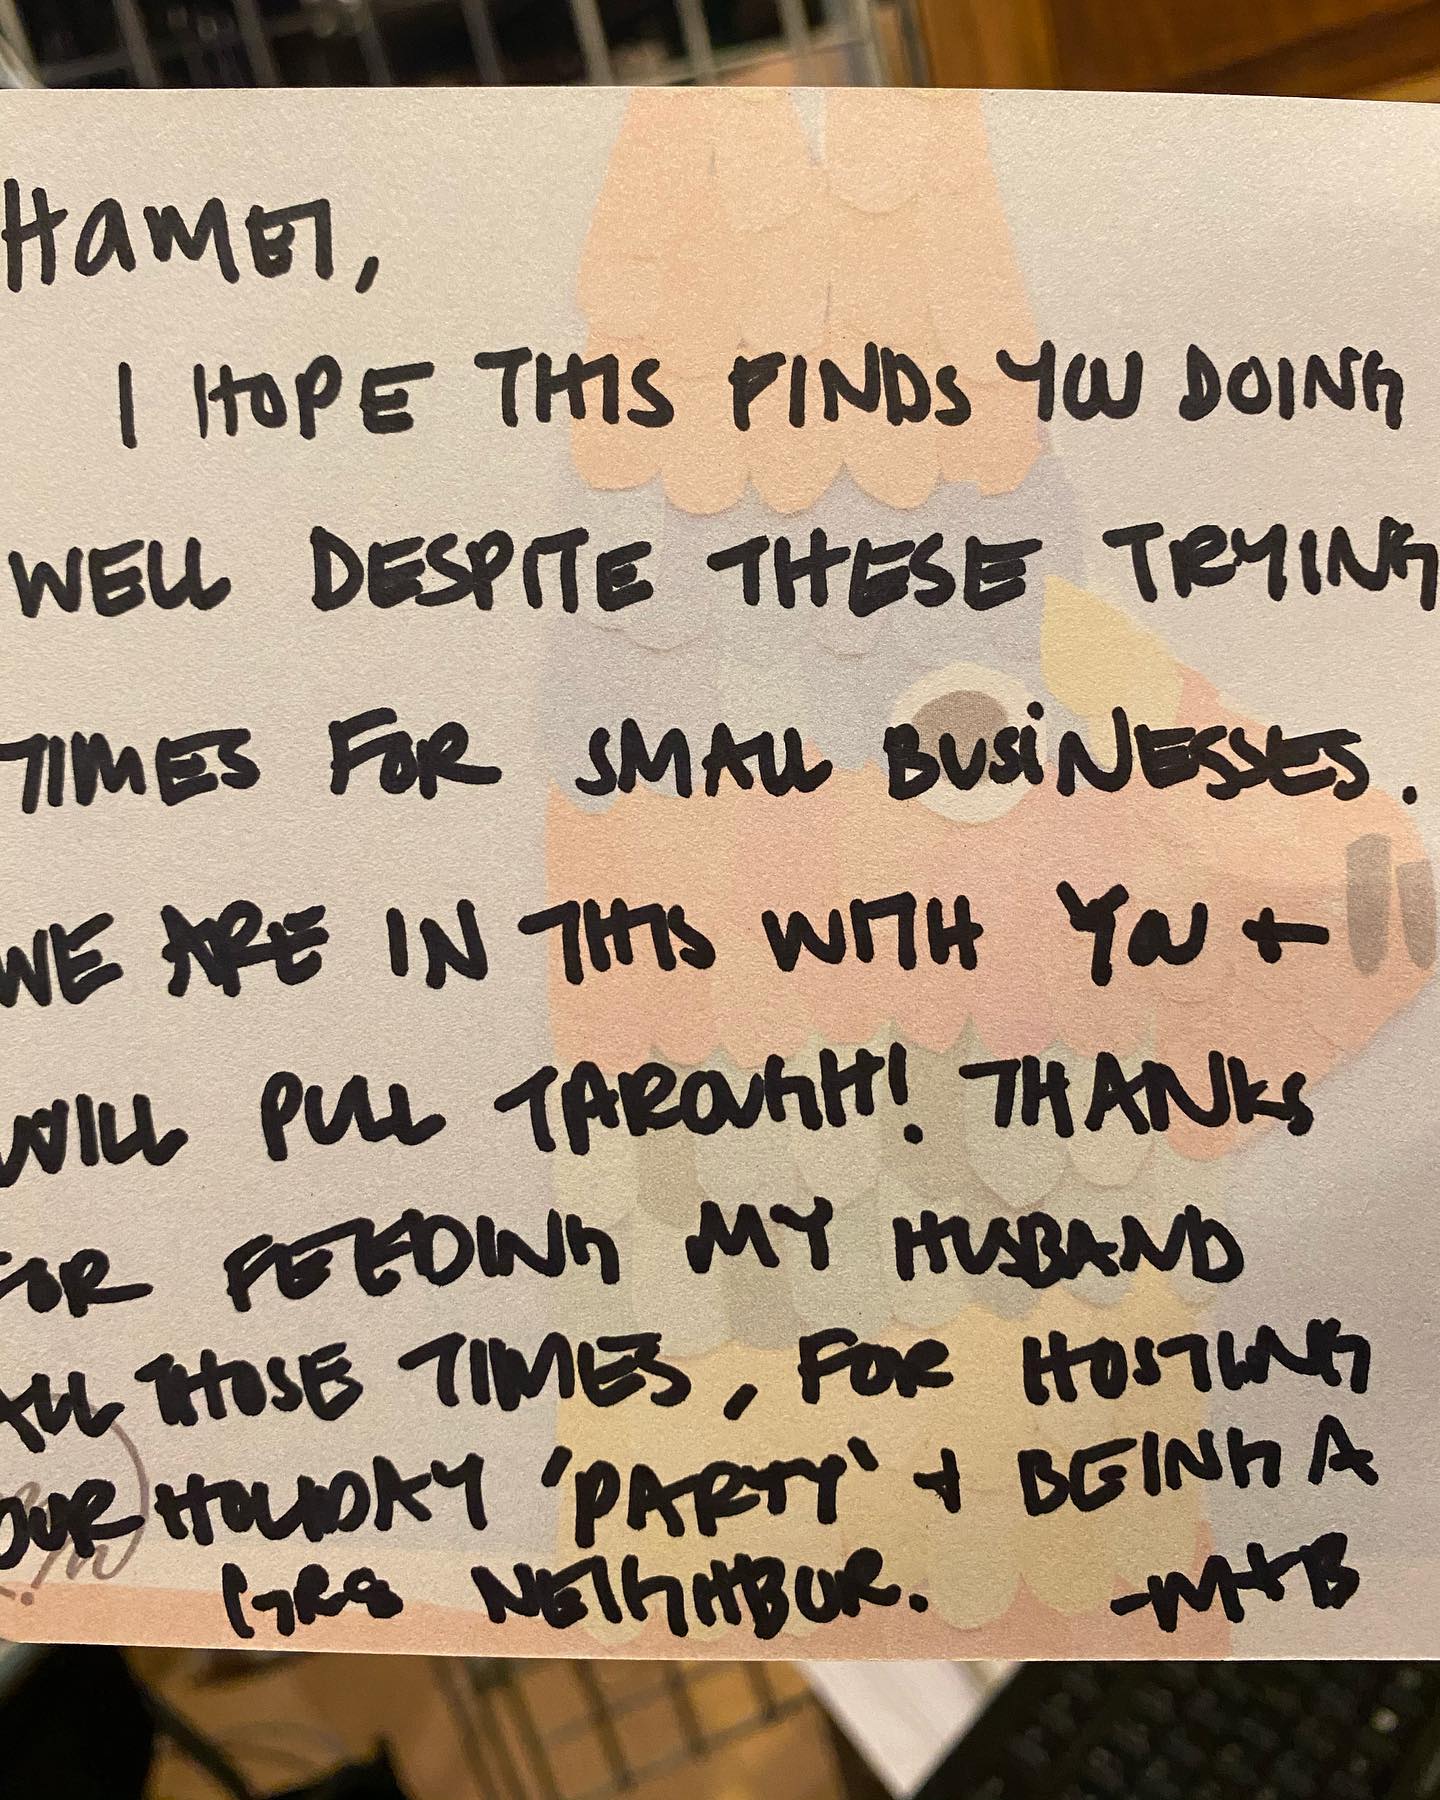 Hamet,
I HOPE THIS FINDS YOU DOING
WELL DESPITE THESE TRYING
TIMES FOR SMALL BUSINESSES.
WE ARE IN THIS WITH YOU +
WILL PULL THROUGH! THANKS
FOR FEEDING MY HUSBAND
ALL THOSE TIMES, FOR HOSTING
OUR HOLIDAY 'PARTY' + BEING A
NEIGHBUR. -M+B